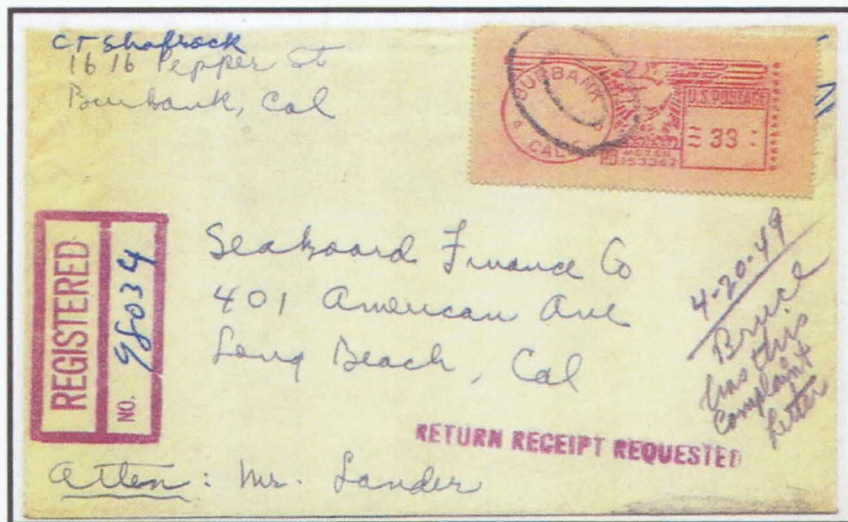 CT Shafrock
1616 Pepper St
Burbank, Cal
BURBANK
CALIF
U.S. POSTAGE
33
METER
REGISTERED
NO. 98034
Seaboard Finance Co
401 American Ave
Long Beach, Cal
4-20-49
Bruce
has this
complaint
letter
RETURN RECEIPT REQUESTED
Atten: Mr. Lander